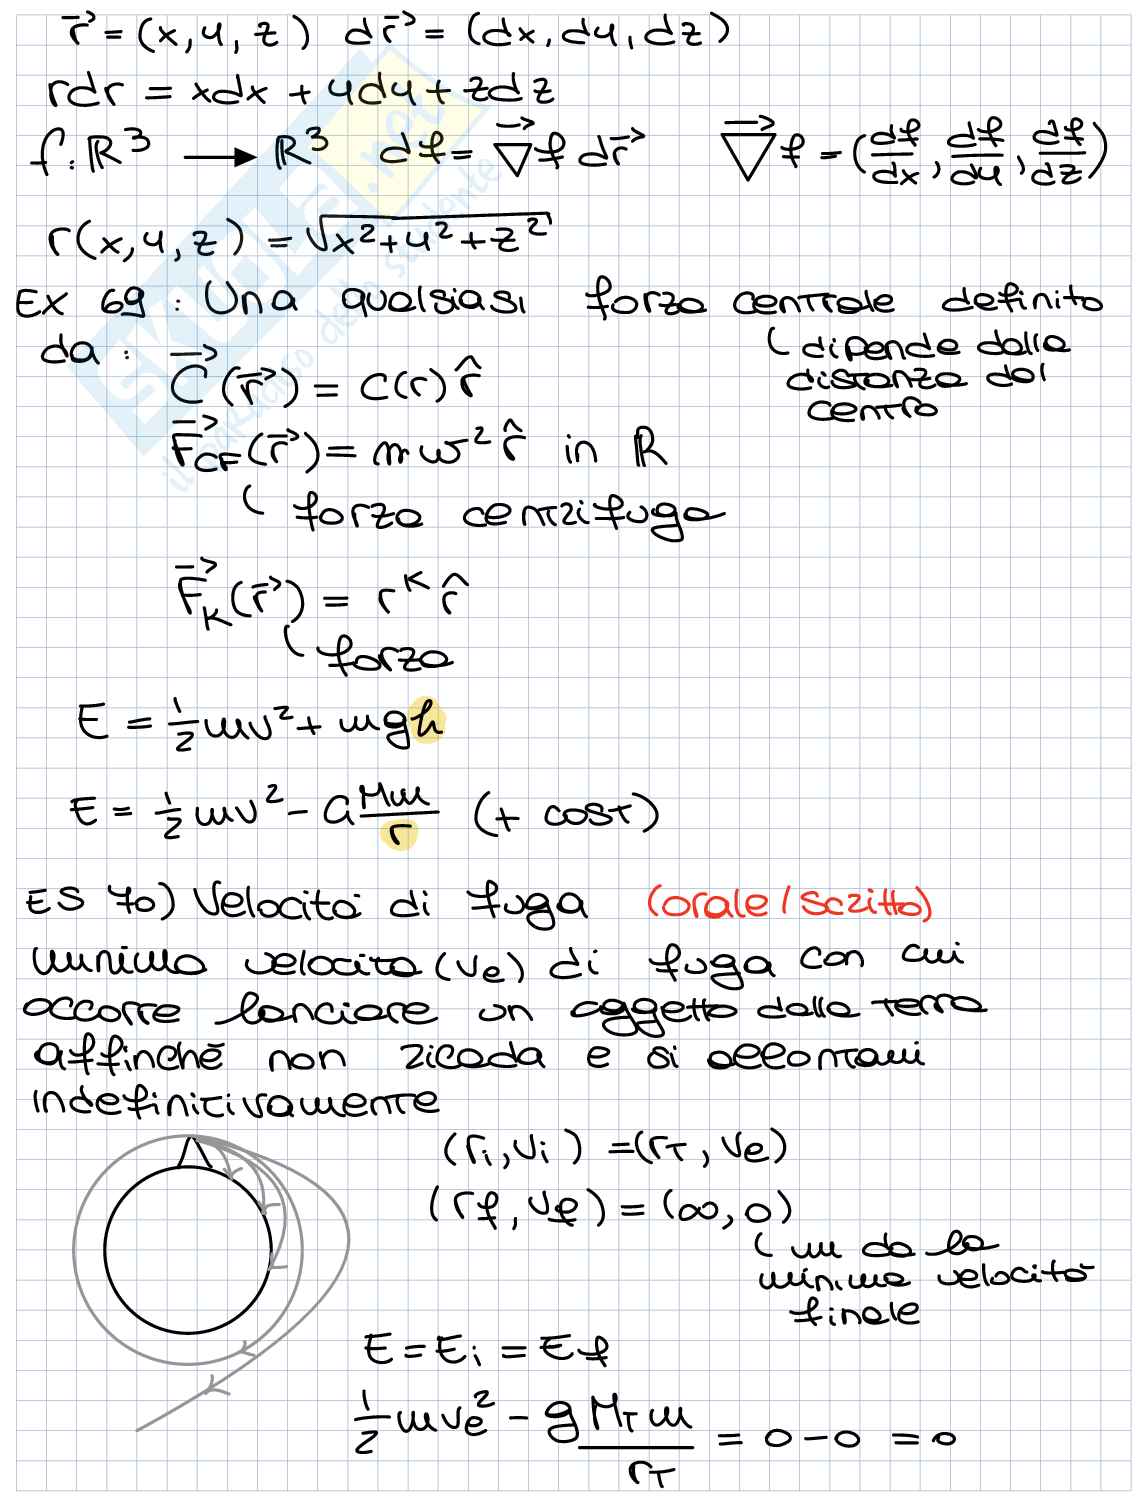 r⃗ = (x, y, z) dr⃗ = (dx, dy, dz)
rdr = xdx + ydy + zdz
f: ℝ³ ⟶ ℝ³ df = ∇⃗f dr⃗ ∇⃗f = (df/dx, df/dy, df/dz)
r(x, y, z) = √(x² + y² + z²)
EX 69: Una qualsiasi forza centrale definito
da: ( dipende dalla
distanza dal
centro
C⃗(r⃗) = C(r) r̂
F⃗CF(r⃗) = mw² r̂ in ℝ
( forza centrifuga
F⃗K(r⃗) = r^K r̂
( forza
E = 1/2 mv² + mgh
E = 1/2 mv² - G Mm/r (+ cost)
ES 70) Velocità di fuga (orale/scritto)
minima velocità (ve) di fuga con cui
occorre lanciare un oggetto dalla terra
affinché non ricada e si allontani
indefinitivamente
(ri, vi) = (rT, ve)
(rf, vf) = (∞, 0)
( mi da la
minima velocità
finale
E = Ei = Ef
1/2 mve² - g MT m/rT = 0 - 0 = 0
SKUOLA.net
il paradiso dello studente